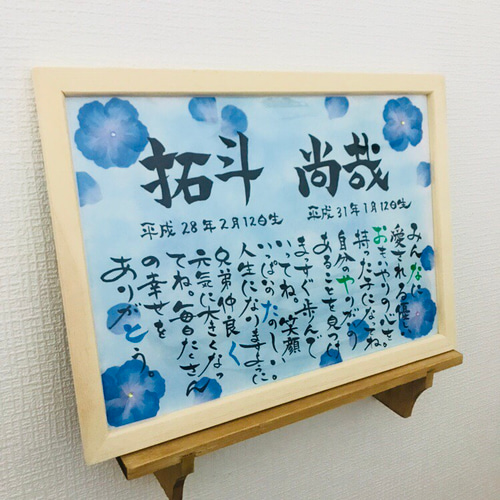 拓斗 尚哉
平成28年2月12日生 平成31年1月12日生
みんなに
愛される優し
おもいやりの心を。
持った子になってね。
自分のやりがいの
あることを見つけ
まっすぐ歩んで
いってね。笑顔
いっぱいのたのしい。
人生になりますように
兄弟仲良く
元気に大きくなっ
てね。毎日たくさん
の幸せを
ありがとう。